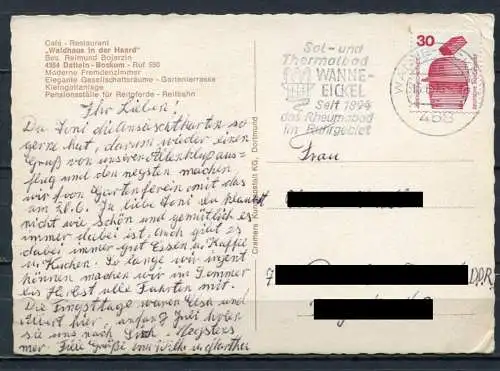 Café - Restaurant
"Waldhaus in der Haard"
Bes. Reimund Bojerzin
4354 Datteln - Boskum - Ruf 550
Moderne Fremdenzimmer
Elegante Gesellschaftsräume - Gartenterrasse
Kleingolfanlage
Pensionsställe für Reitpferde - Reitbahn
Ihr Lieben!
Da Toni die Ansichtskarten so
gerne hat, darum wieder einen
Gruß von unserem Ausflug
und den machen
wir vom Gartenverein mit das
am 20.6. Ja liebe Toni du glaubst
nicht wie schön und gemütlich es
immer dabei ist, auch gibt es
dabei immer gut Essen u. Kaffee
u. Kuchen. So lange wir irgent
können machen wir im Sommer
bis Herbst alle Fahrten mit.
Die Pfingsttage waren Elsh und
Albert hier, anfang Juli holen
sie uns nach
mer. Viele Grüße von Wilh. u. Marther
Cramers Kunstanstalt KG, Dortmund
Sol- und
Thermalbad
WANNE-
EICKEL
Seit 1894
das Rheumabad
im Ruhrgebiet
WANNE-
468
30
Frau
7
DDR